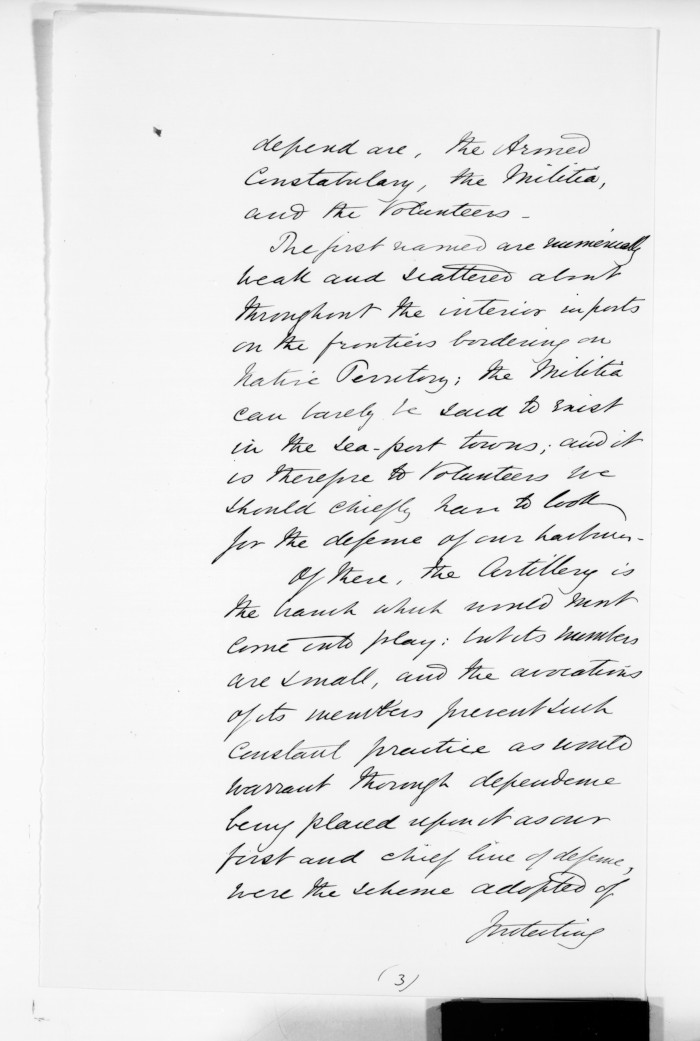 depend are, the Armed
Constabulary, the Militia,
and the Volunteers -
The first named are numerically
weak and scattered about
throughout the interior in posts
on the frontiers bordering on
Native Territory; the Militia
can barely be said to exist
in the sea-port towns; and it
is therefore to Volunteers we
should chiefly have to look
for the defense of our harbours -
Of these, the Artillery is
the branch which would most
come into play: but its numbers
are small, and the avocations
of its members prevent such
constant practice as would
warrant thorough dependence
being placed upon it as our
first and chief line of defense,
were the scheme adopted of
Protecting
(3)